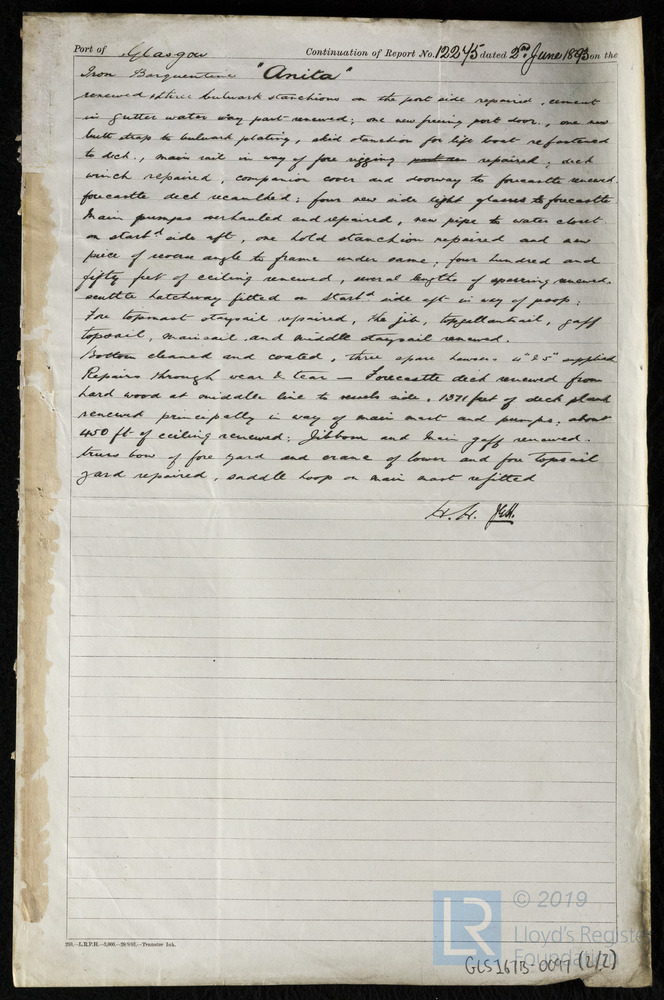 Port of Glasgow Continuation of Report No. 12245 dated 2nd June 1893 on the
Iron Barquentine "Anita"
renewed & three bulwark stanchions on the port side repaired, cement
in gutter water way part renewed; one new freeing port door, one new
butt strap to bulwark plating, skid stanchion for life boat refastened
to deck, main rail in way of fore rigging repaired; deck
winch repaired, companion cover and doorway to forecastle renewed.
forecastle deck recaulked; four new side light glasses to forecastle
Main pumps overhauled and repaired, new pipe to water closet
on starbd side aft, one hold stanchion repaired and new
piece of reverse angle to frame under same; four hundred and
fifty feet of ceiling renewed, several lengths of sparring renewed.
scuttle hatchway fitted on starbd side aft in way of poop;
Fore topmast staysail repaired, the jib, topgallantsail, gaff
topsail, mainsail and middle staysail renewed.
Bottom cleaned and coated, three spare hawsers 4" & 5" supplied
Repairs through wear & tear — Forecastle deck renewed from
hard wood at middle line to vessels side, 1371 feet of deck plank
renewed principally in way of main mast and pumps; about
450 ft of ceiling renewed; Jibboom and Main gaff renewed.
truss bow of fore yard and crane of lower and fore topsail
yard repaired, saddle hoop on main mast refitted
210.—L.R.P.H.—Transfer Ink.
© 2019
LR
Lloyd's Register
Foundation
GLS1673-0097 (2/2)